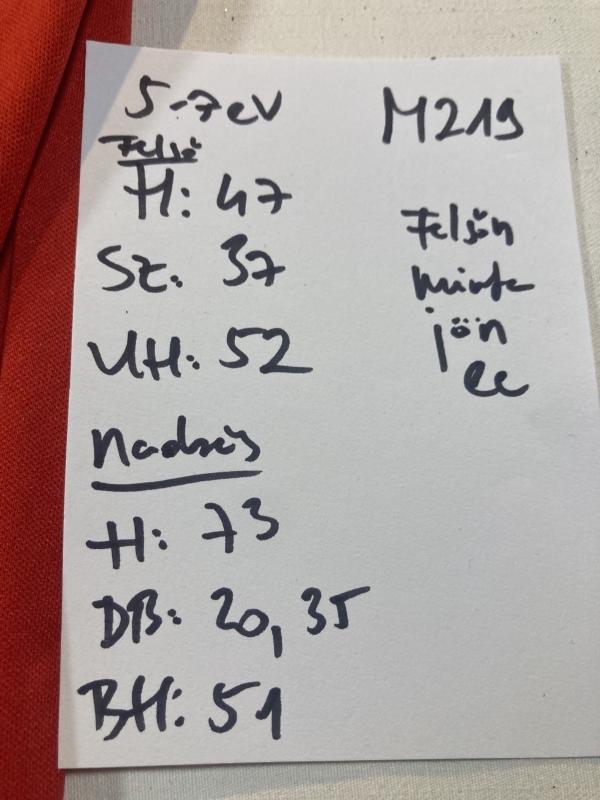 5-7 év
M219
Felső
H: 47
Sz: 37
UH: 52
Felsőn
minta
jön
le
Nadrág
H: 73
DB: 20,35
BH: 51